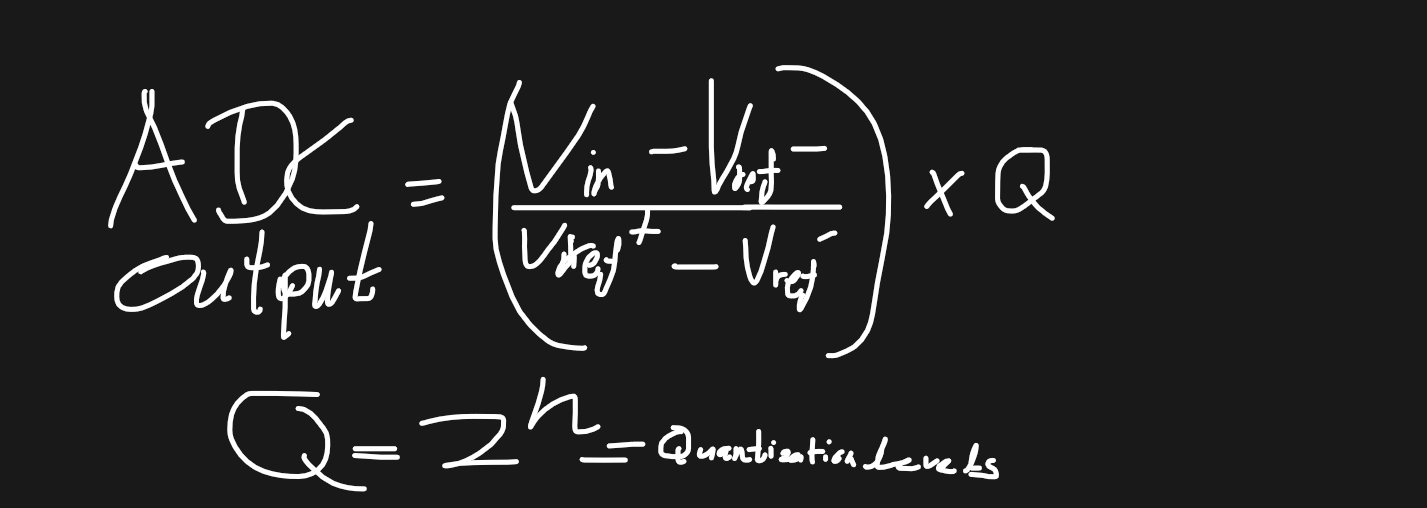 ADC Output = ((Vin - Vref-) / (Vref+ - Vref-)) × Q
Q = 2^n = Quantization Levels